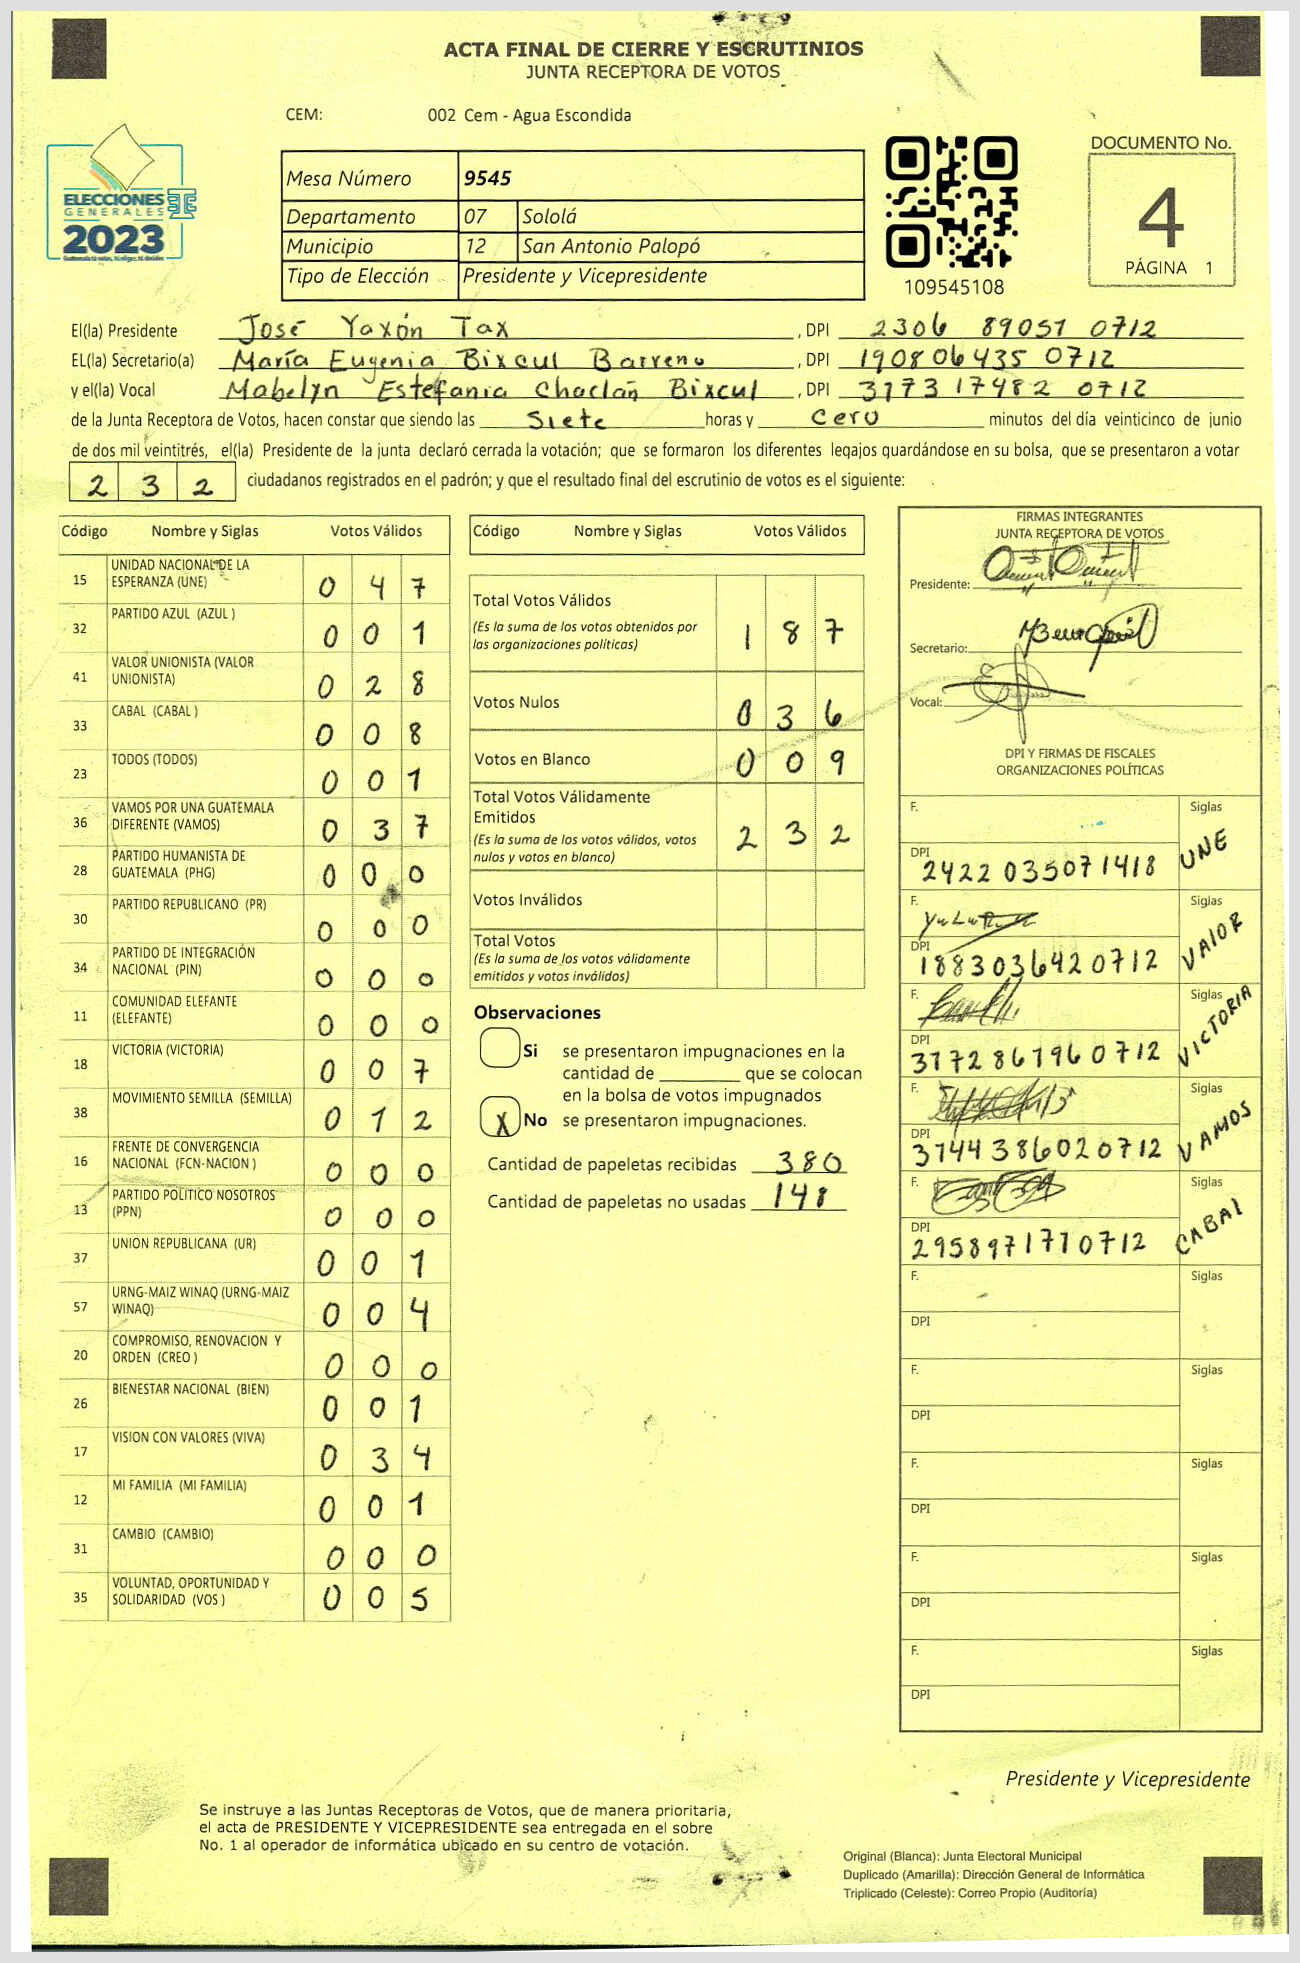 ACTA FINAL DE CIERRE Y ESCRUTINIOS
JUNTA RECEPTORA DE VOTOS
CEM: 002 Cem - Agua Escondida
ELECCIONES
GENERALES
2023
Mesa Número 9545
Departamento 07 Sololá
Municipio 12 San Antonio Palopó
Tipo de Elección Presidente y Vicepresidente
109545108
DOCUMENTO No.
4
PÁGINA 1
El(la) Presidente José Yaxón Tax , DPI 2306 89051 0712
EL(la) Secretario(a) María Eugenia Bixcul Barreno , DPI 190806435 0712
y el(la) Vocal Mabelyn Estefania Choclán Bixcul , DPI 3173 17482 0712
de la Junta Receptora de Votos, hacen constar que siendo las Siete horas y Cero minutos del día veinticinco de junio
de dos mil veintitrés, el(la) Presidente de la junta declaró cerrada la votación; que se formaron los diferentes legajos guardándose en su bolsa, que se presentaron a votar
232 ciudadanos registrados en el padrón; y que el resultado final del escrutinio de votos es el siguiente:
Código Nombre y Siglas Votos Válidos
15 UNIDAD NACIONAL DE LA ESPERANZA (UNE) 0 4 7
32 PARTIDO AZUL (AZUL ) 0 0 1
41 VALOR UNIONISTA (VALOR UNIONISTA) 0 2 8
33 CABAL (CABAL ) 0 0 8
23 TODOS (TODOS) 0 0 1
36 VAMOS POR UNA GUATEMALA DIFERENTE (VAMOS) 0 3 7
28 PARTIDO HUMANISTA DE GUATEMALA (PHG) 0 0 0
30 PARTIDO REPUBLICANO (PR) 0 0 0
34 PARTIDO DE INTEGRACIÓN NACIONAL (PIN) 0 0 0
11 COMUNIDAD ELEFANTE (ELEFANTE) 0 0 0
18 VICTORIA (VICTORIA) 0 0 7
38 MOVIMIENTO SEMILLA (SEMILLA) 0 1 2
16 FRENTE DE CONVERGENCIA NACIONAL (FCN-NACION ) 0 0 0
13 PARTIDO POLITICO NOSOTROS (PPN) 0 0 0
37 UNION REPUBLICANA (UR) 0 0 1
57 URNG-MAIZ WINAQ (URNG-MAIZ WINAQ) 0 0 4
20 COMPROMISO, RENOVACION Y ORDEN (CREO ) 0 0 0
26 BIENESTAR NACIONAL (BIEN) 0 0 1
17 VISION CON VALORES (VIVA) 0 3 4
12 MI FAMILIA (MI FAMILIA) 0 0 1
31 CAMBIO (CAMBIO) 0 0 0
35 VOLUNTAD, OPORTUNIDAD Y SOLIDARIDAD (VOS ) 0 0 5
Código Nombre y Siglas Votos Válidos
Total Votos Válidos 1 8 7
(Es la suma de los votos obtenidos por
las organizaciones políticas)
Votos Nulos 0 3 6
Votos en Blanco 0 0 9
Total Votos Válidamente
Emitidos 2 3 2
(Es la suma de los votos válidos, votos
nulos y votos en blanco)
Votos Inválidos
Total Votos
(Es la suma de los votos válidamente
emitidos y votos inválidos)
Observaciones
Si se presentaron impugnaciones en la
cantidad de ________ que se colocan
en la bolsa de votos impugnados
X No se presentaron impugnaciones.
Cantidad de papeletas recibidas 380
Cantidad de papeletas no usadas 148
FIRMAS INTEGRANTES
JUNTA RECEPTORA DE VOTOS
Presidente:
Secretario:
Vocal:
DPI Y FIRMAS DE FISCALES
ORGANIZACIONES POLÍTICAS
F. Siglas UNE
DPI 2422 035071418
F. Siglas VALOR
DPI 1883036420712
F. Siglas VICTORIA
DPI 3172861960712
F. Siglas VAMOS
DPI 3744386020712
F. Siglas CABAL
DPI 2958971710712
F. Siglas
DPI
F. Siglas
DPI
F. Siglas
DPI
F. Siglas
DPI
F. Siglas
DPI
Presidente y Vicepresidente
Se instruye a las Juntas Receptoras de Votos, que de manera prioritaria,
el acta de PRESIDENTE Y VICEPRESIDENTE sea entregada en el sobre
No. 1 al operador de informática ubicado en su centro de votación.
Original (Blanca): Junta Electoral Municipal
Duplicado (Amarilla): Dirección General de Informática
Triplicado (Celeste): Correo Propio (Auditoría)